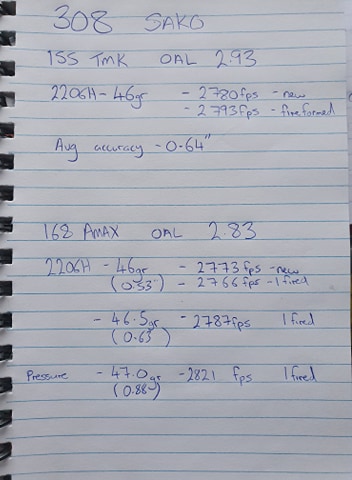 308 SAKO
155 TMK OAL 2.93
2206H - 46gr - 2780fps - new
- 2793fps - fireformed
Avg accuracy - 0.64"
168 AMAX OAL 2.83
2206H - 46gr - 2773fps - new
(0.53") - 2766fps - 1 fired
- 46.5gr - 2787fps 1 fired
(0.63")
Pressure - 47.0gr - 2821 fps 1 fired
(0.88")